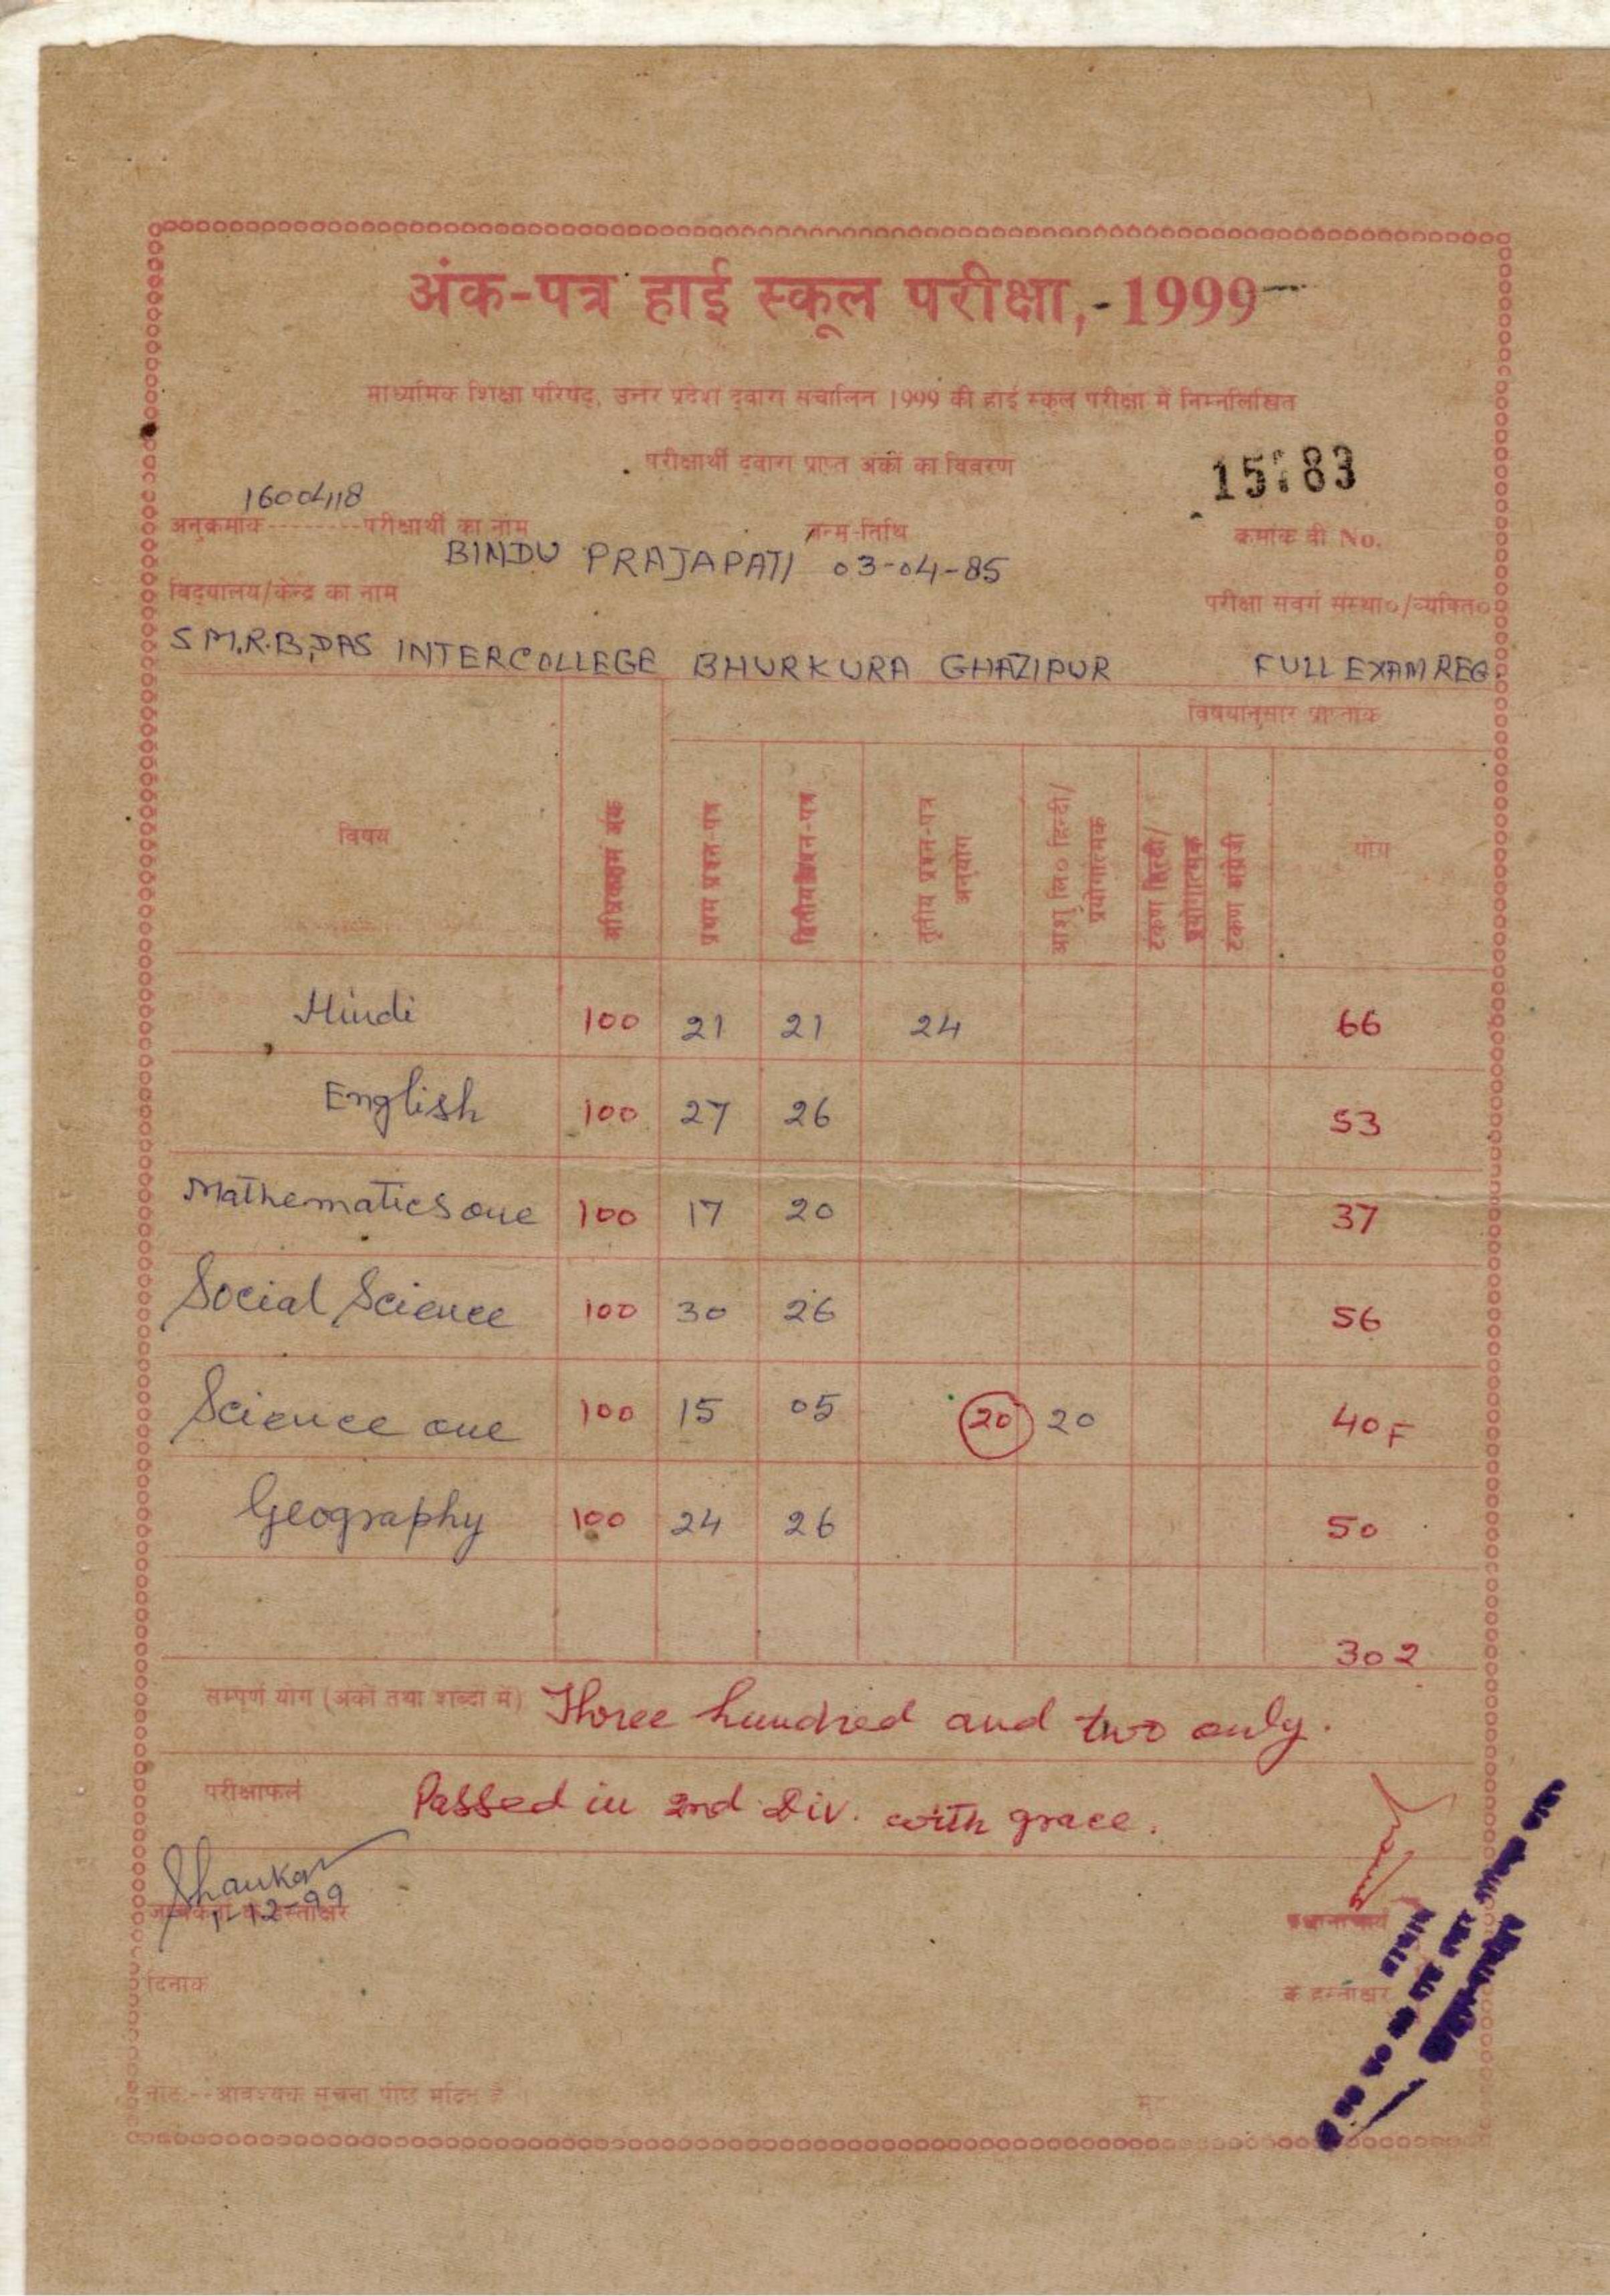 अंक-पत्र हाई स्कूल परीक्षा,-1999
माध्यमिक शिक्षा परिषद्, उत्तर प्रदेश द्वारा संचालित 1999 की हाई स्कूल परीक्षा में निम्नलिखित
परीक्षार्थी द्वारा प्राप्त अंकों का विवरण
15183
1600418
अनुक्रमांक--------परीक्षार्थी का नाम जन्म-तिथि क्रमांक बी No.
BINDU PRAJAPATI 03-04-85
विद्यालय/केन्द्र का नाम परीक्षा संवर्ग संस्था०/व्यक्ति०
S M.R.B.DAS INTERCOLLEGE BHURKURA GHAZIPUR FULL EXAM REG
विषयानुसार प्राप्तांक
विषय अधिकतम अंक प्रथम प्रश्न-पत्र द्वितीय प्रश्न-पत्र तृतीय प्रश्न-पत्र आशु लि० हिन्दी/ प्रयोगात्मक टंकण हिन्दी/ प्रयोगात्मक टंकण अंग्रेजी योग
Hindi 100 21 21 24 66
English 100 27 26 53
Mathematics one 100 17 20 37
Social Science 100 30 26 56
Science one 100 15 05 20 20 40 F
Geography 100 24 26 50
302
सम्पूर्ण योग (अंकों तथा शब्दों में) Three hundred and two only.
परीक्षाफल Passed in 2nd Div. with grace.
Shankar
जांचकर्ता के हस्ताक्षर प्रधानाचार्य
दिनांक के हस्ताक्षर
नोट:--आवश्यक सूचना पीछे मुद्रित है